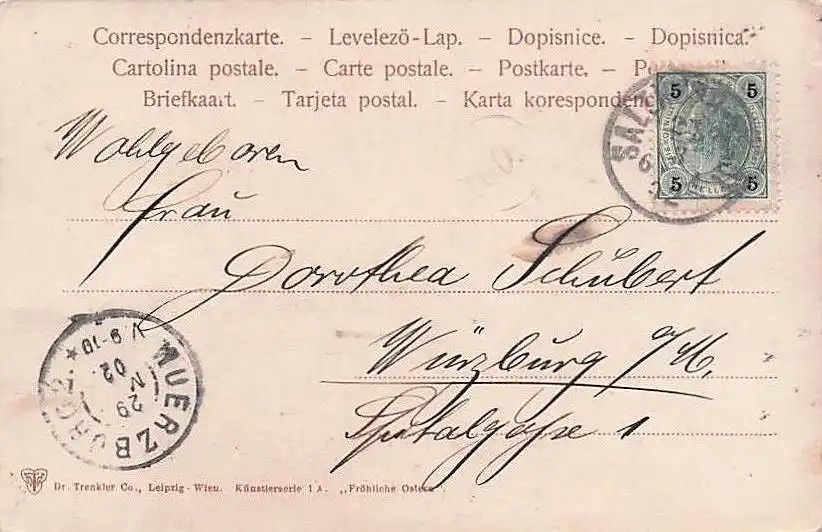 Correspondenzkarte. – Levelezö-Lap. – Dopisnice. – Dopisnica.
Cartolina postale. – Carte postale. – Postkarte. –
Briefkaart. – Tarjeta postal. – Karta korespondenc
5 5
5 5
HELLER
SALZ
Wohlgeboren
Frau
Dorothea Schubert
Würzburg a/M.
Spitalgasse 1
WUERZBURG 2. *
29 IV 02.
V 9-10
Dr. Trenkler Co., Leipzig - Wien. Künstlerserie 1 A. „Fröhliche Ostern“